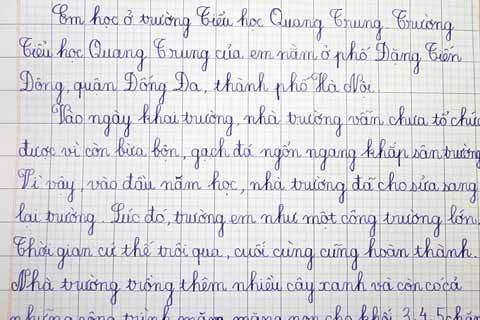 Em học ở trường Tiểu học Quang Trung. Trường
Tiểu học Quang Trung của em nằm ở phố Đặng Tiến
Đông, quận Đống Đa, thành phố Hà Nội.
Vào ngày khai trường, nhà trường vẫn chưa tổ chức
được vì còn bừa bộn, gạch đá ngổn ngang khắp sân trường.
Vì vậy, vào đầu năm học, nhà trường đã cho sửa sang
lại trường. Lúc đó, trường em như một công trường lớn.
Thời gian cứ thế trôi qua, cuối cùng cũng hoàn thành.
Nhà trường trồng thêm nhiều cây xanh và còn có cả
những công trình măng non cho khối 3, 4, 5 chăm